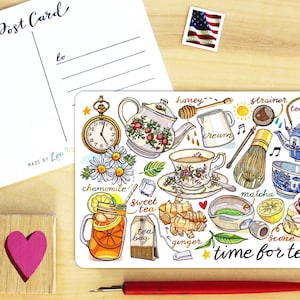 Post Card
to
MADE BY
honey
strainer
cream
chamomile
matcha
sweet
tea
tea
bag
ginger
scone
time for te